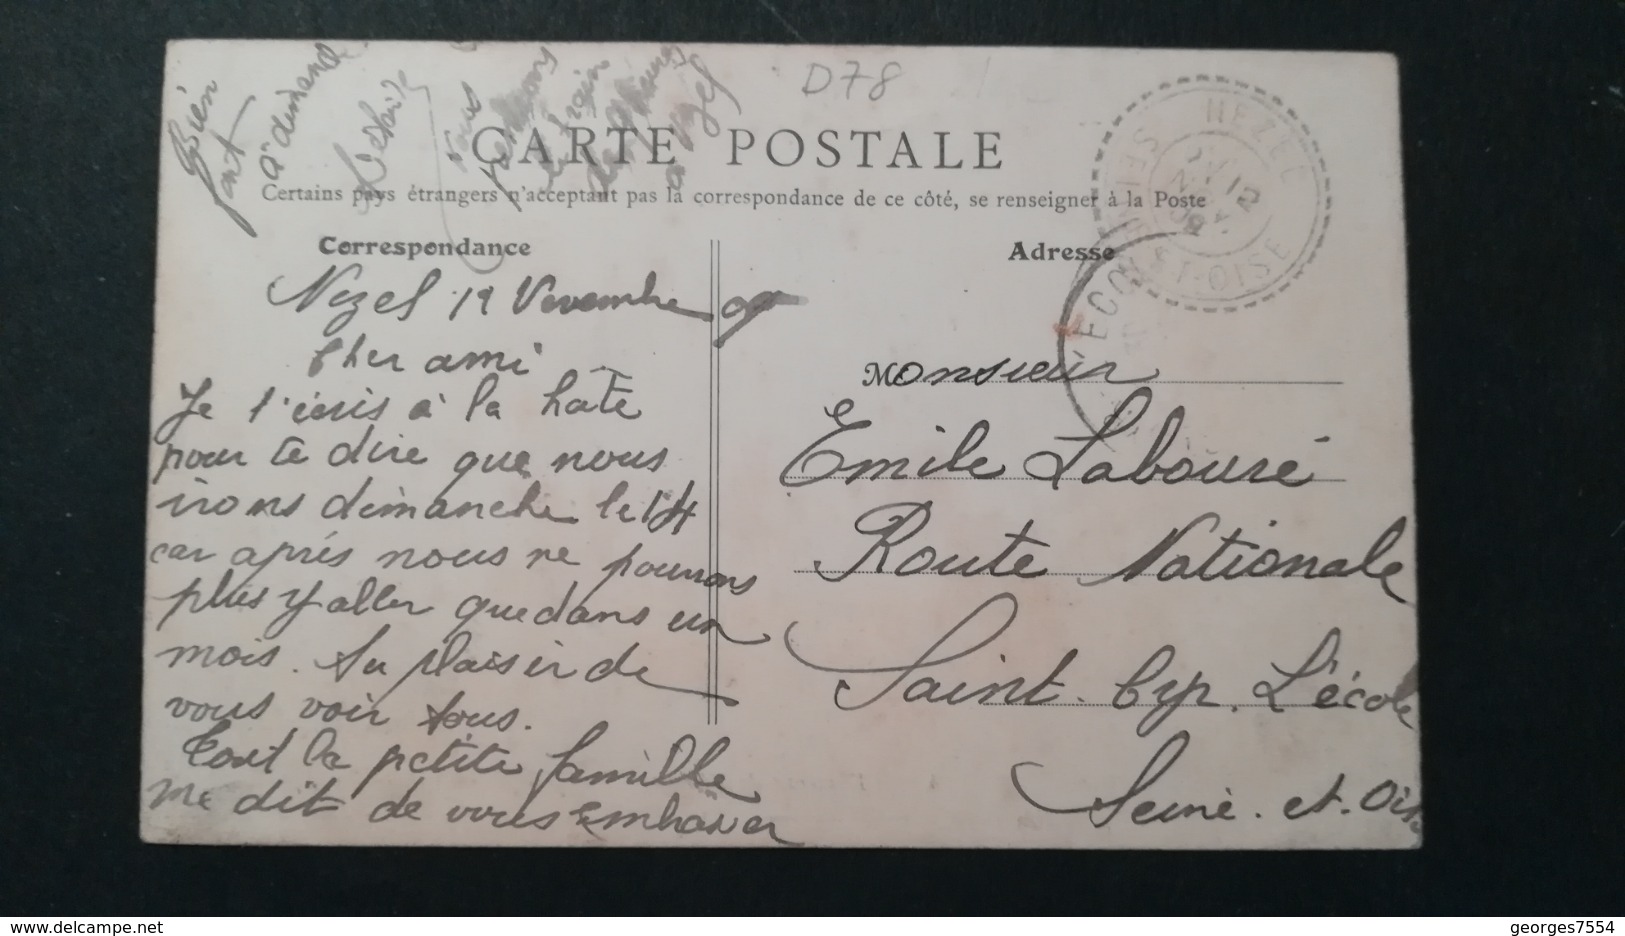 D78
CARTE POSTALE
Certains pays étrangers n'acceptent pas la correspondance de ce côté, se renseigner à la Poste
Correspondance
Adresse
NEZEL
SEINE-ET-OISE
L'ECOLE
Bien
à dimanche
nous
prendrons
le train
à Nezel
Nézel 12 Novembre 09
Cher ami
Je t'écris à la hâte
pour te dire que nous
irons dimanche le 14
car après nous ne pourrons
plus y aller que dans un
mois. Au plaisir de
vous voir tous.
Tout la petite famille
me dit de vous embrasser
Monsieur
Emile Labouré
Route Nationale
Saint. Cyr. L'école
Seine. et. Oise
georges7554